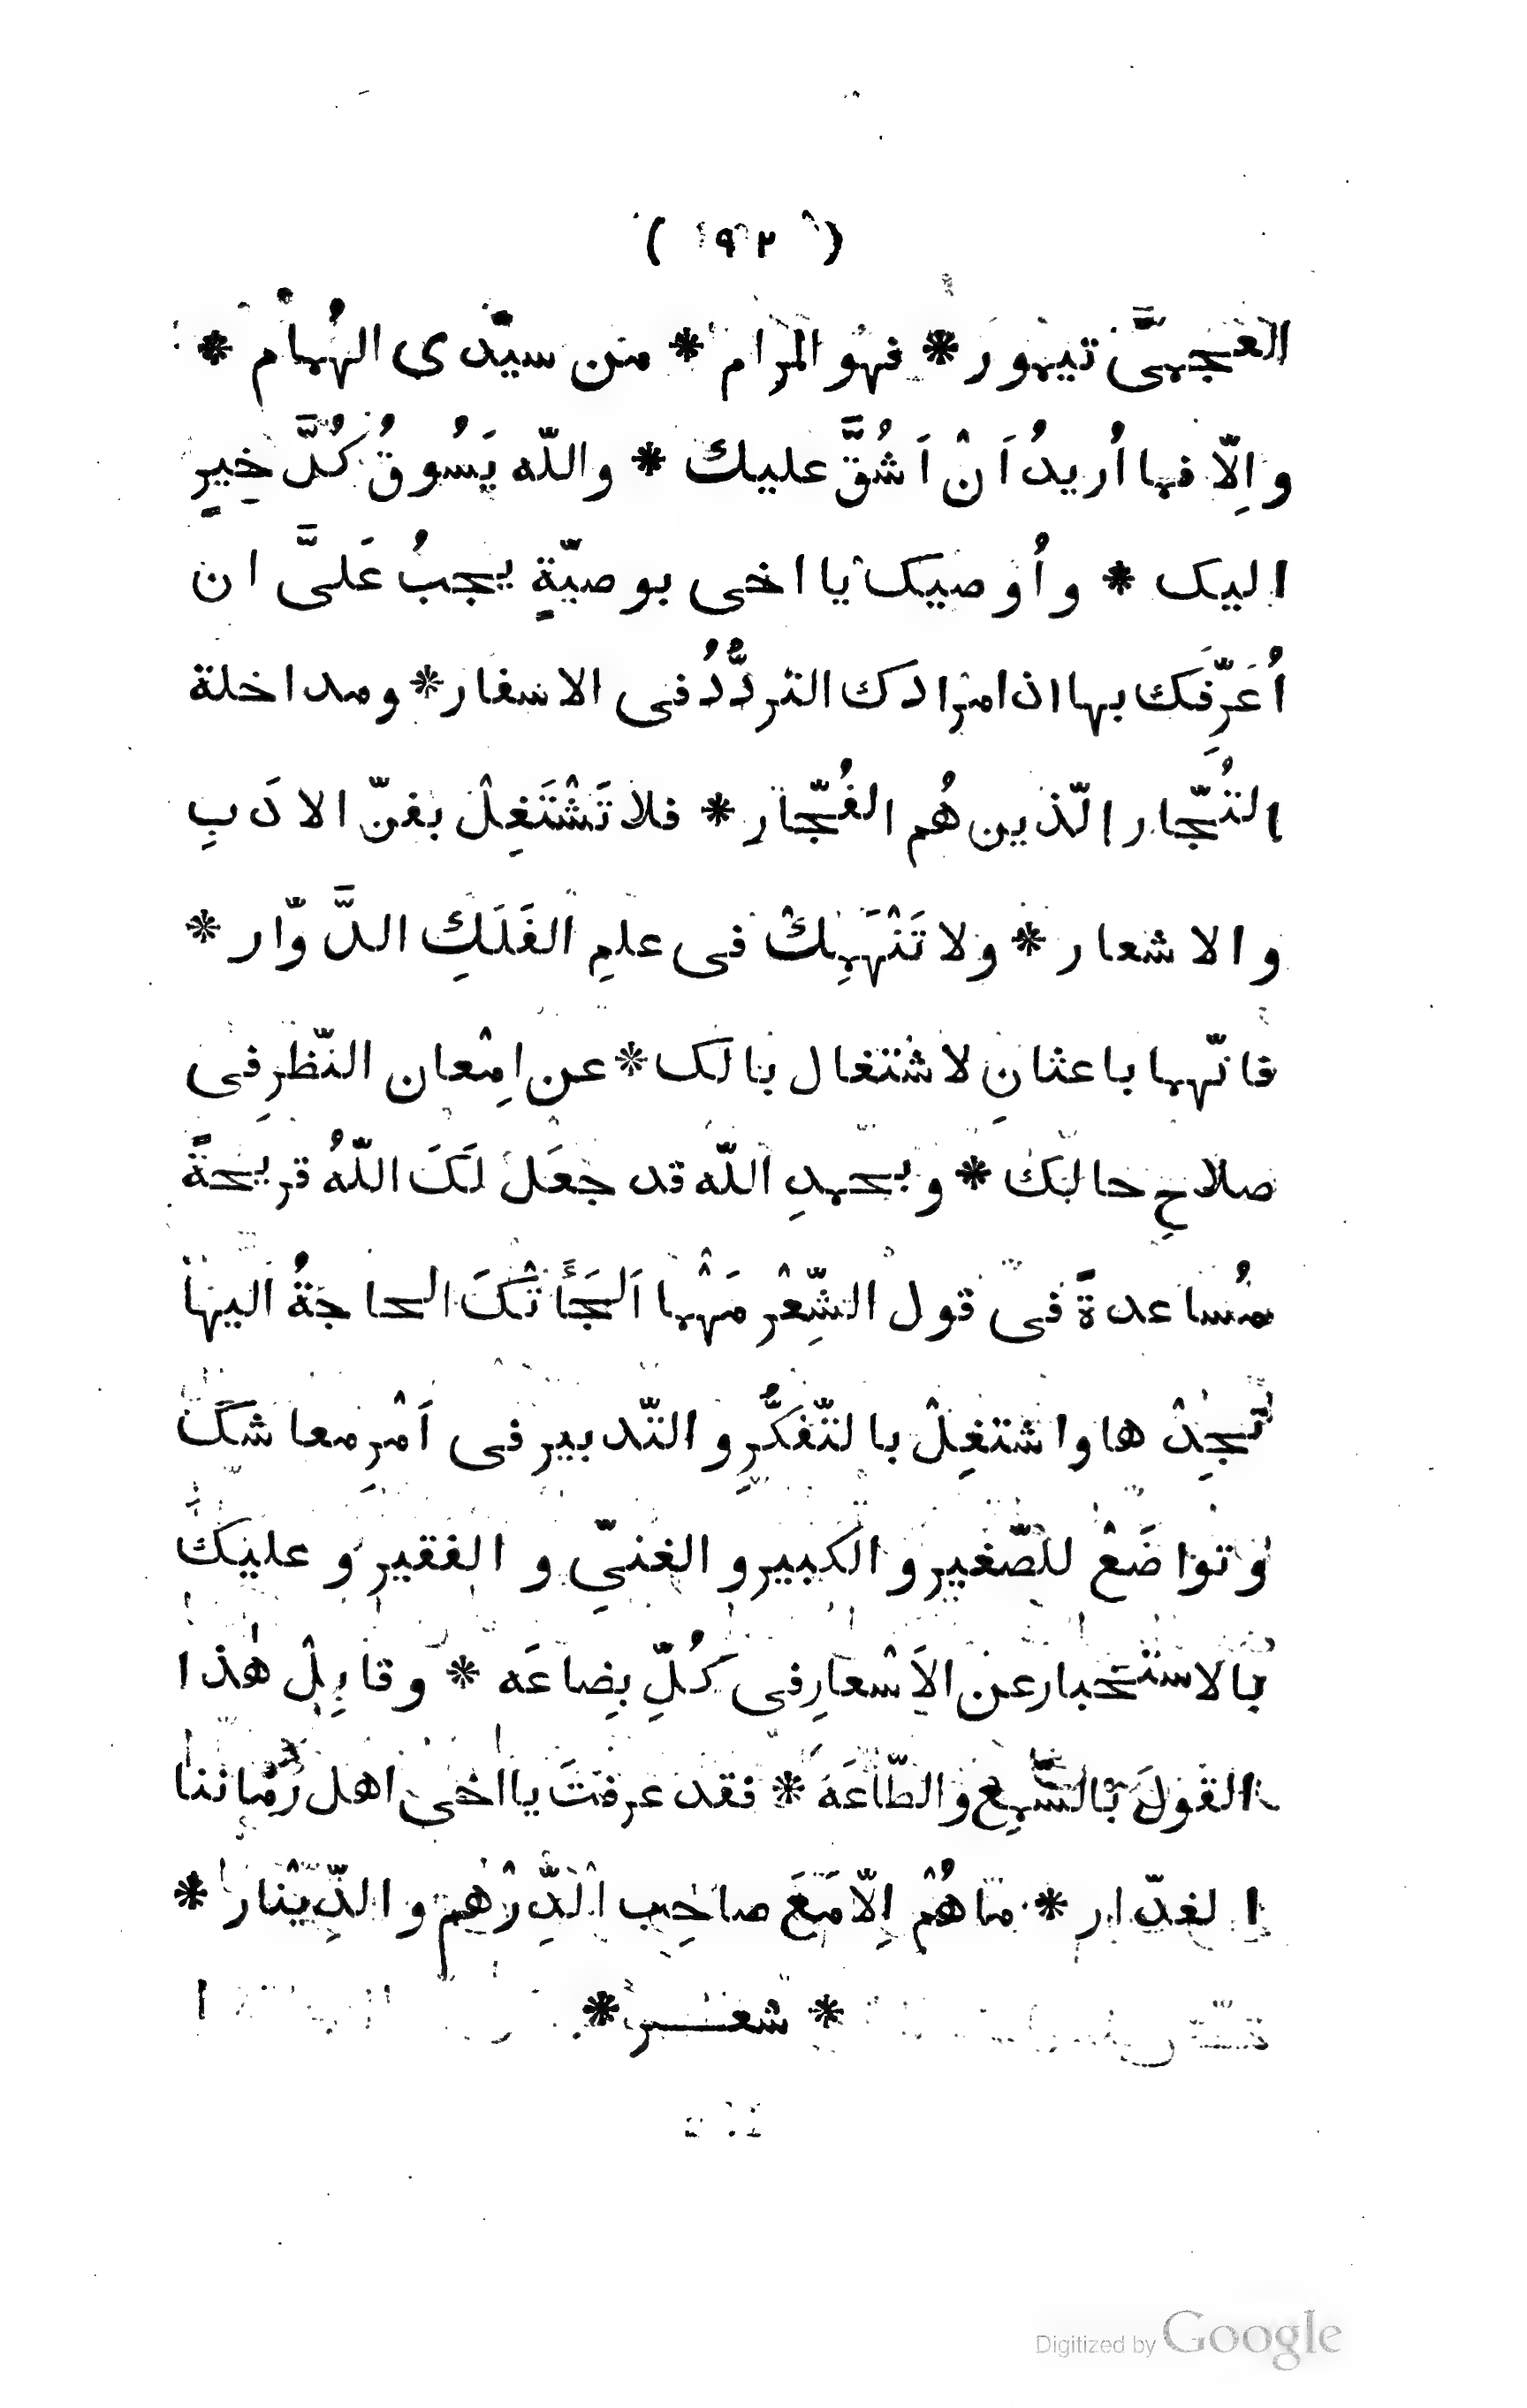 ( ١٩٢ )
العَجمىَّ تيمور * فهو المرام * من سيّدى الهُمام *
واِلّا فما اُريدُ اَنْ اَشُقَّ عليك * واللّه يَسُوقُ كُلَّ خيرٍ
اليك * واُوصيك يا اخى بوصيّةٍ يجبُ عَلىَّ ان
اُعَرِّفَك بها اذ امرادك التردُّدُ فى الاسفار * ومداخلة
التُجّار الّذين هُم الفُجّار * فلا تَشْتَغِلْ بفنّ الادَبِ
والاشعار * ولا تَنْهَمِكْ فى علمِ الفَلَكِ الدَّوّار *
فانّهما باعثانِ لاشتغال بالك * عن اِمْعان النّظرِ فى
صلاحِ حالك * وبحمدِ اللّه قد جعَلَ لَكَ اللّهُ قريحةً
مُساعدةً فى قول الشِّعْرِ مَهْما اَلجَأَتْكَ الحاجةُ اليها
تَجِدْها واشتغِلْ بالتّفكُّرِ والتّدبير فى اَمْرِ معاشك
وتواضَعْ للصّغير والكبير والغنىّ والفقير وعليك
بالاستخبار عن الاَسْعارِ فى كُلِّ بِضاعَه * وقابِلْ هذا
القولَ بالسَّمعِ والطّاعَه * فقد عرفتَ يا اخى اهل زماننا
الغدّار * ما هُمْ اِلّا مَعَ صاحِب الدِّرْهم والدِّيْنار *
* شعر *
Digitized by Google